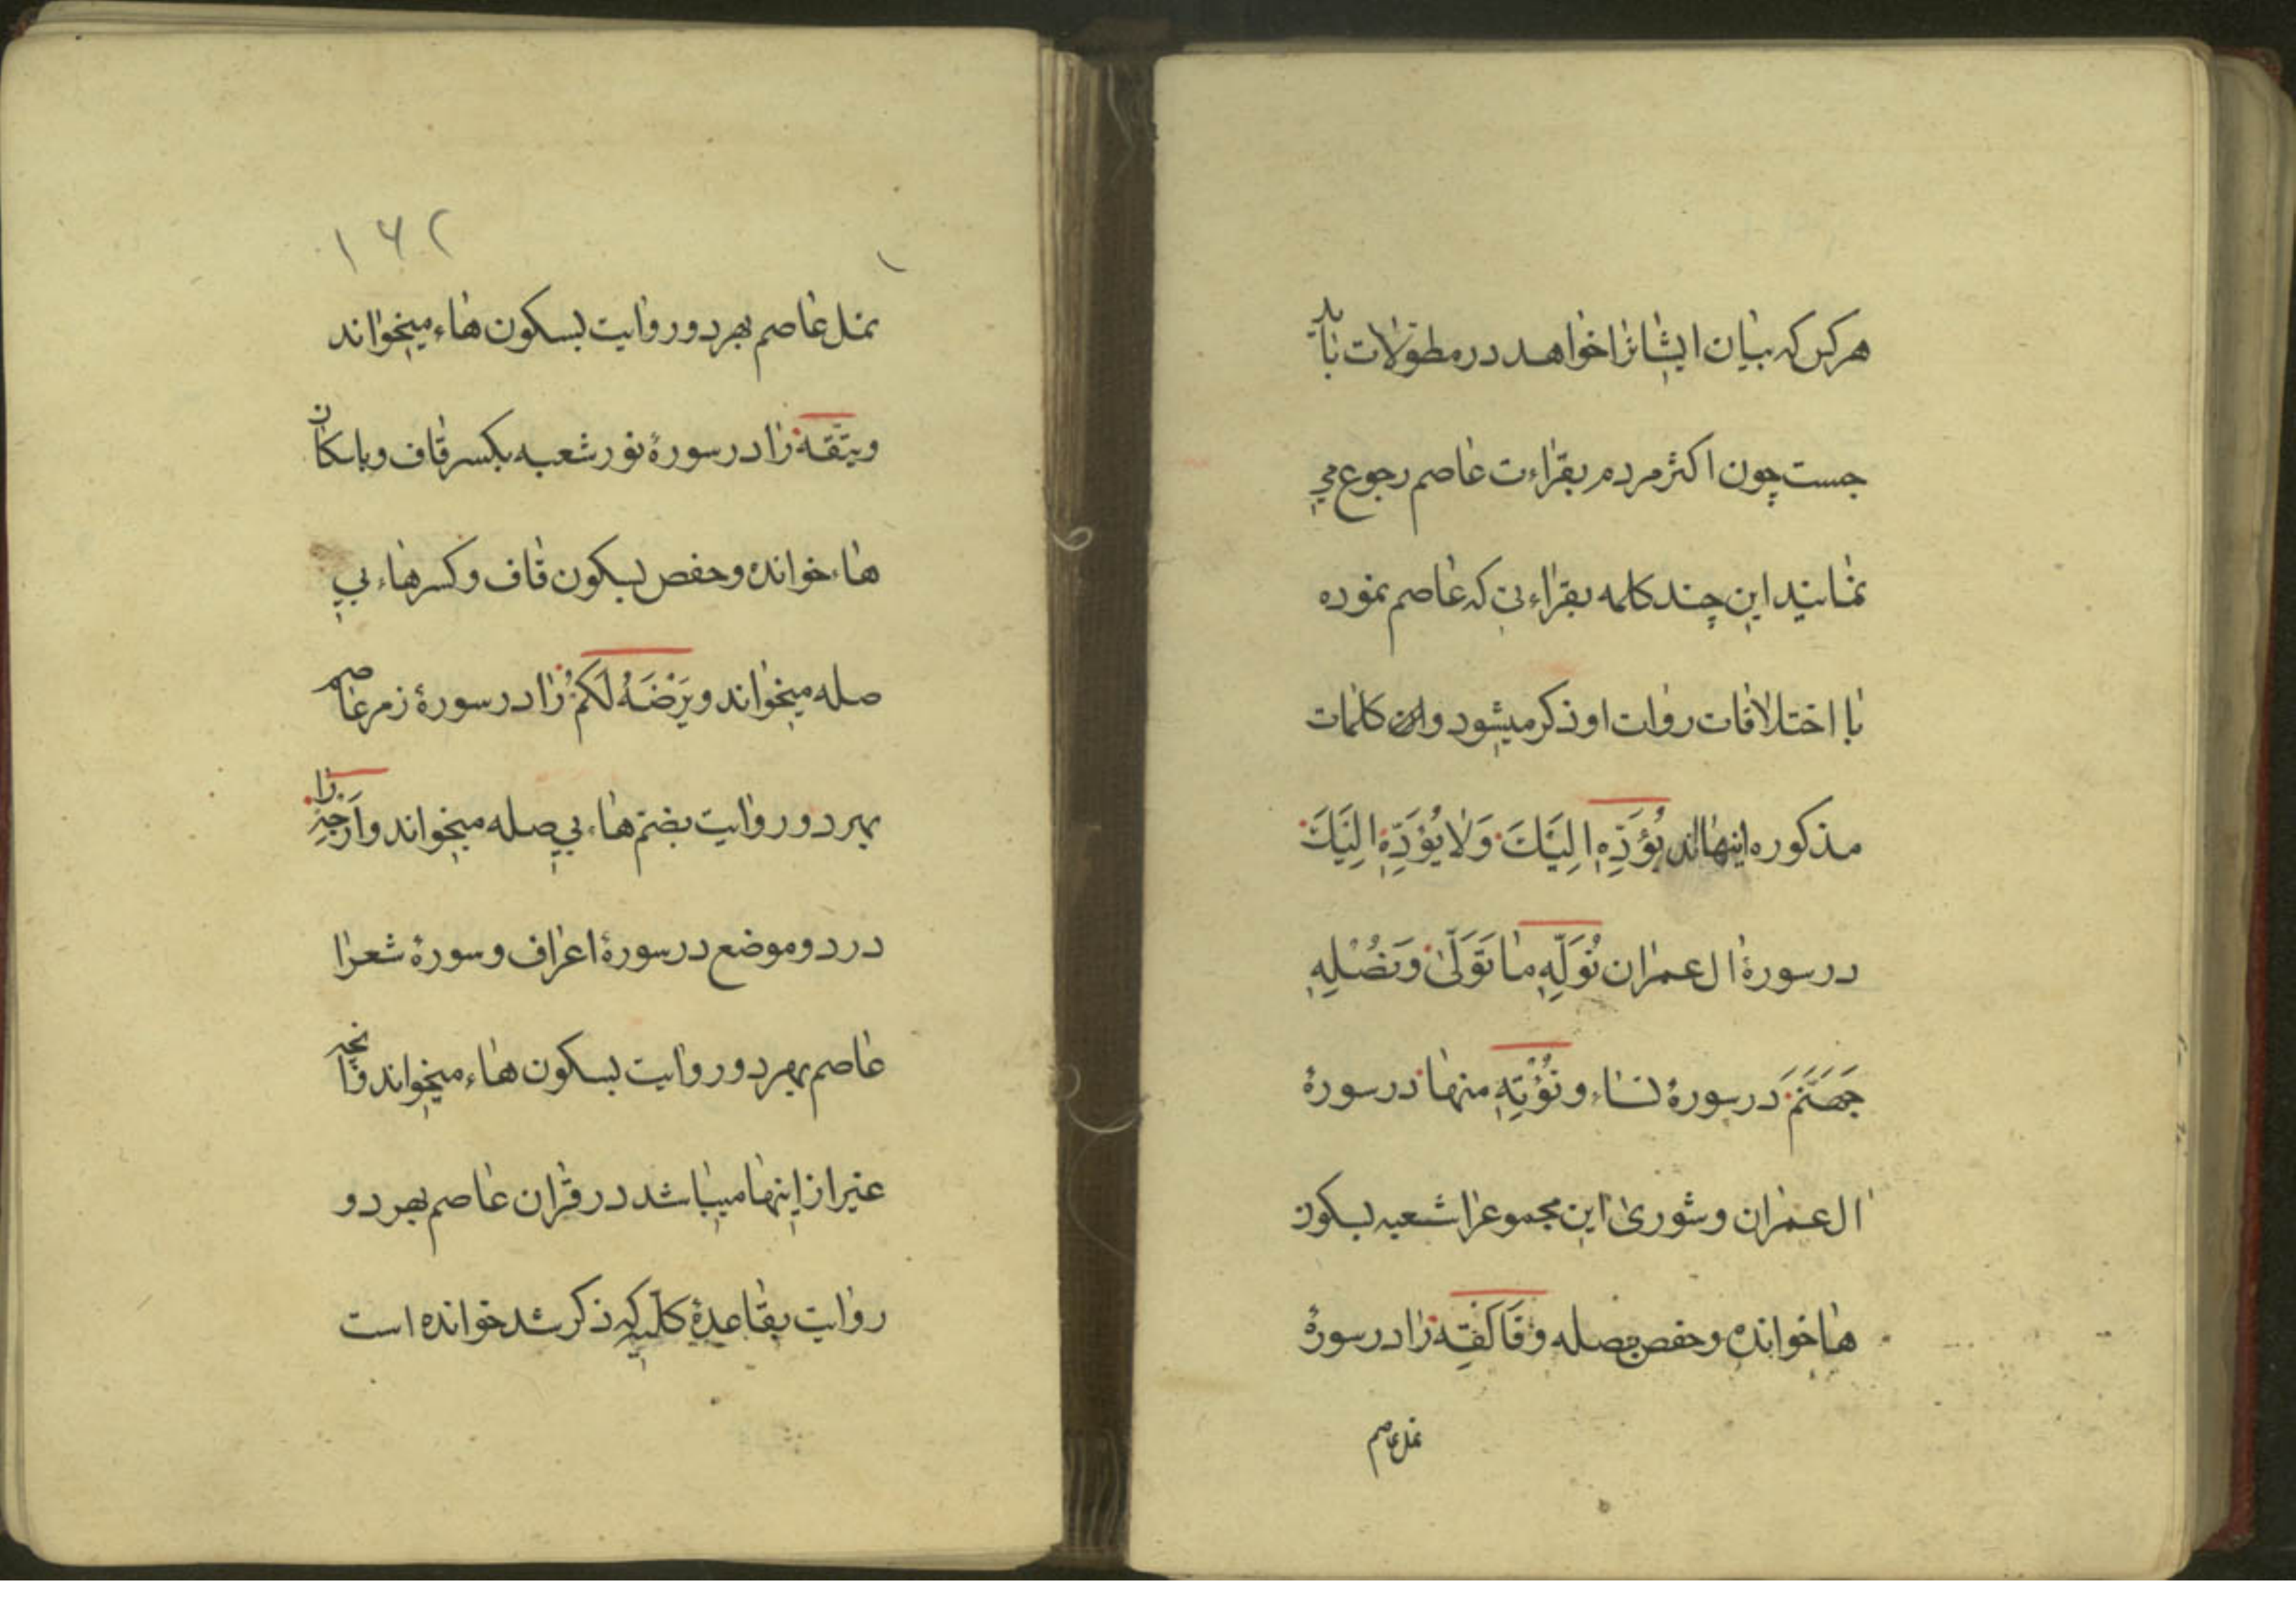 هر کس که بیان ایشانرا خواهد در مطوّلات باید
جست چون اکثر مردم بقراءت عاصم رجوع می
نمایند این چند کلمه بقراءتی که عاصم نموده
با اختلافات روات او ذکر میشود و این کلمات
مذکوره اینهااند یُؤَدِّهِ اِلَیْكَ وَلا یُؤَدِّهِ اِلَیْكَ
در سورهٔ ال عمران نُوَلِّهِ ما تَوَلّیٰ وَنُصْلِهِ
جَهَنَّمَ در سورهٔ نساء و نُؤْتِهِ منها در سورهٔ
ال عمران و شوریٰ این مجموعرا شعبه بسکون
ها خوانده و حفص بصله و فَاَلْقِه را در سورهٔ
نمل عاصم
۱۶۲
نمل عاصم بهر دو روایت بسکون هاء میخواند
و یتّقه را در سورهٔ نور شعبه بکسر قاف و باسکان
هاء خوانده و حفص بسکون قاف و کسر هاء بی
صله میخواند و یَرْضَهُ لَکُمْ را در سورهٔ زمر عاصم
بهر دو روایت بضمّ هاء بی صله میخواند و اَرْجِهْ را
در دو موضع در سورهٔ اعراف و سورهٔ شعرا
عاصم بهر دو روایت بسکون هاء میخواند و آنچه
غیر از اینها میباشد در قرآن عاصم بهر دو
روایت بقاعدهٔ کلّیه که ذکر شد خوانده است